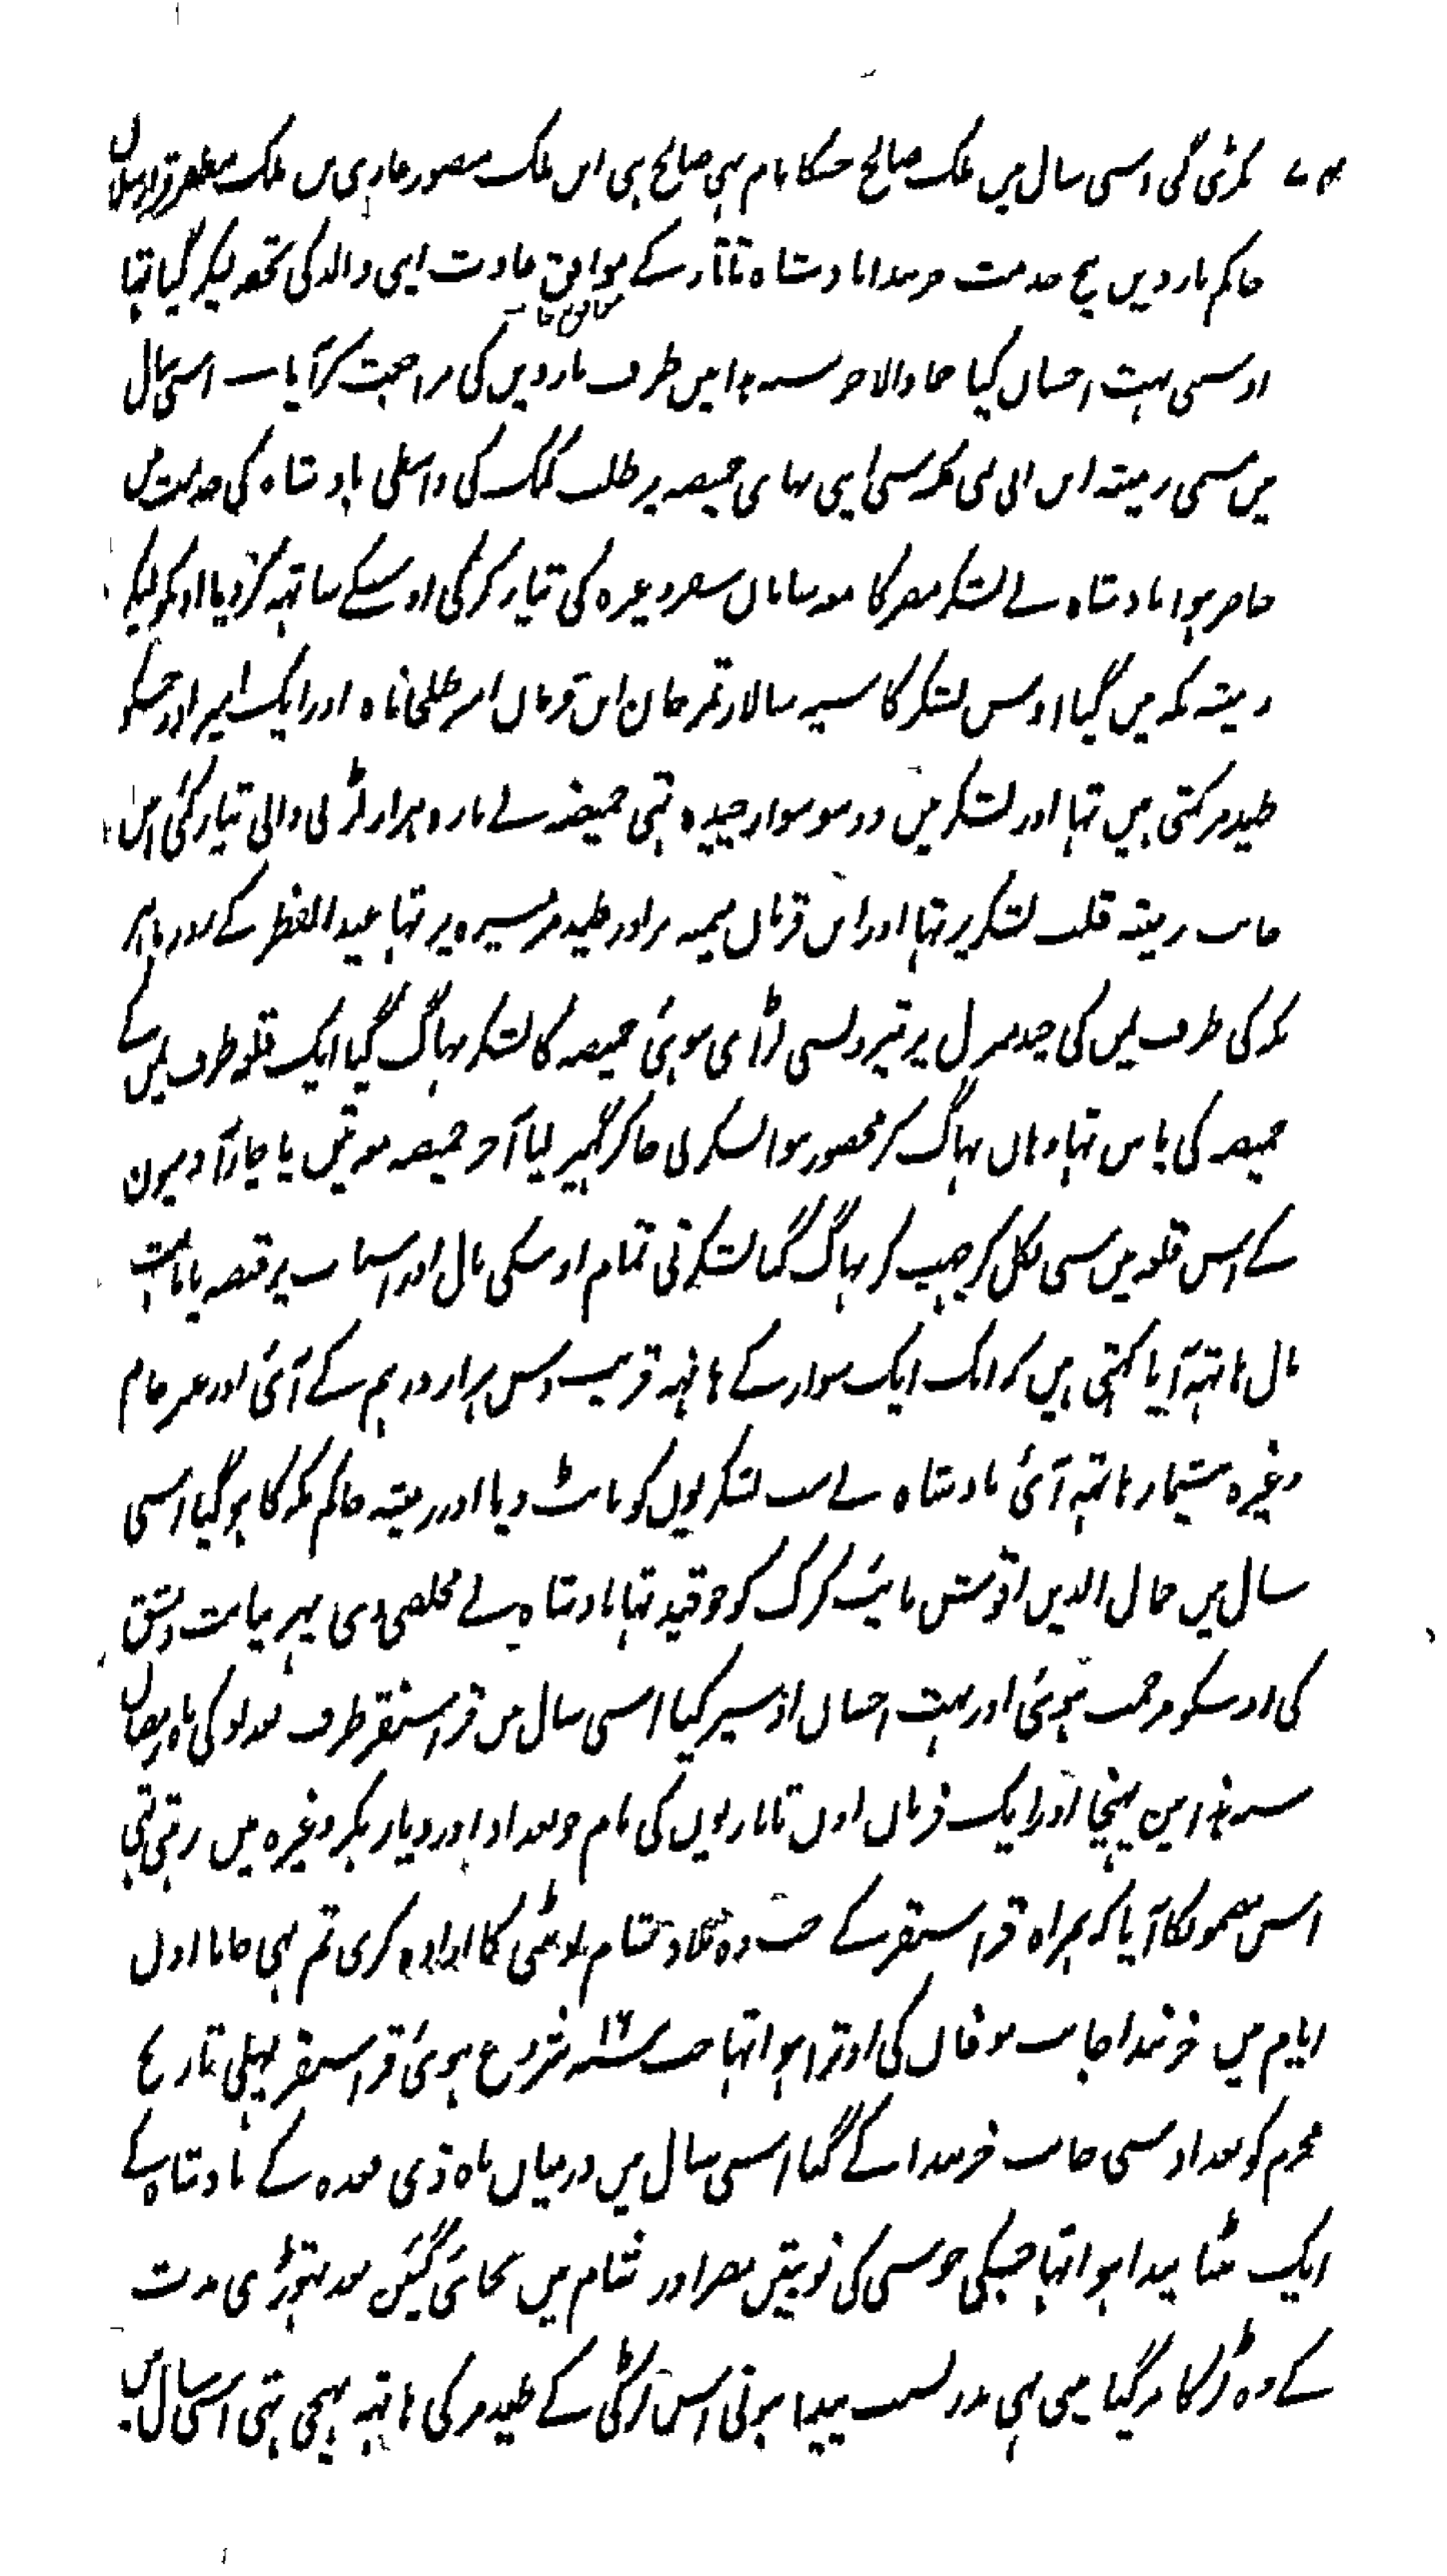 پکڑی گئی اسی سال میں ملک صالح جسکا نام بہی صالح ہی ابن ملک منصور غازی بن ملک مظفر قرا ارسلان
حاکم ماردین بیچ خدمت خربندا بادشاہ تاتار کے موافق عادت اپنی والد کی تحفہ لیکر گیا تہا
اوسنی بہت احسان کیا جمادالآخر سنہ ہذا میں طرف ماردین کی مراجعت کر آیا — اسی سال
میں مسمی رمیثہ ابن ابی نمی مکہ سی اپنی بہائی حمیضہ پر طلب کمک کی واسطی بادشاہ کی خدمت میں
حاضر ہوا بادشاہ نے لشکر مصر کا معہ سامان سفر وغیرہ کی تیار کرکی اوسکے ساتہہ کر دیا اونکو لیکر
رمیثہ مکہ میں گیا اوس لشکر کا سپہ سالار تمر خان ابن قرمان امیر طبلخاناہ اور ایک امیر اور جسکو
طیدمر کہتی ہیں تہا اور لشکر میں دو سو سوار چیدہ تہی حمیضہ نے بارہ ہزار لڑنی والی تیار کئی اس
جانب رمیثہ قلب لشکر پر تہا اور ابن قرمان میمنہ پر اور طیدمر میسرہ پر تہا عید الفطر کے روز باہر
مکہ کی طرف یمن کی چند منزل پر تیر و لسی لڑائی ہوئی حمیضہ کا لشکر بہاگ گیا ایک قلعہ طرف یمن کے
حمیضہ کی پاس تہا وہاں بہاگ کر محصور ہوا لشکر نی جا کر گہیر لیا آخر حمیضہ معہ تین یا چار آدمیون
کے اس قلعہ میں سی نکل کر چہپ کر بہاگ گیا لشکر نی تمام اوسکی مال اور اسباب پر قبضہ پایا بہت
مال ہاتہہ آیا کہتی ہیں کہ ایک ایک سوار کے ہاتہہ قریب دس ہزار درہم کے آئی اور عنبر خام
وغیرہ بیشمار ہاتہہ آئی بادشاہ نے سب لشکریوں کو بانٹ دیا اور رمیثہ حاکم مکہ کا ہو گیا اسی
سال میں جمال الدین اقوش نائب کرک کو جو قید تہا بادشاہ نے مخلصی دی پہر نیابت دمشق
کی اوسکو مرحمت ہوئی اور بہت احسان اوسپر کیا اسی سال میں قراسنقر طرف بغداد کی ماہ رمضان
سنہ ہذا میں پہنچا اور ایک فرمان اون تاتاریوں کی نام جو بغداد اور دیار بکر وغیرہ میں رہتی تہی
اس مضمونکا آیا کہ ہمراہ قراسنقر کے جب وہ بلاد شام لوٹنی کا ارادہ کری تم بہی جانا اون
ایام میں خربندا جانب موغان کی اوترا ہوا تہا جب سنہ ۱۶ شروع ہوئی قراسنقر پہلی تاریخ
محرم کو بغداد سی جانب خربندا کے گیا اسی سال میں درمیان ماہ ذی قعدہ کے بادشاہ کے
ایک بیٹا پیدا ہوا تہا جسکی خوشی کی نوبتیں مصر اور شام میں بجائی گئیں بعد تہوڑی مدت
کے وہ لڑکا مر گیا میں بہی پیدا ہونی اس لڑکی کے طیدمر کی ہاتہہ بہیجی تہی اسی سال میں